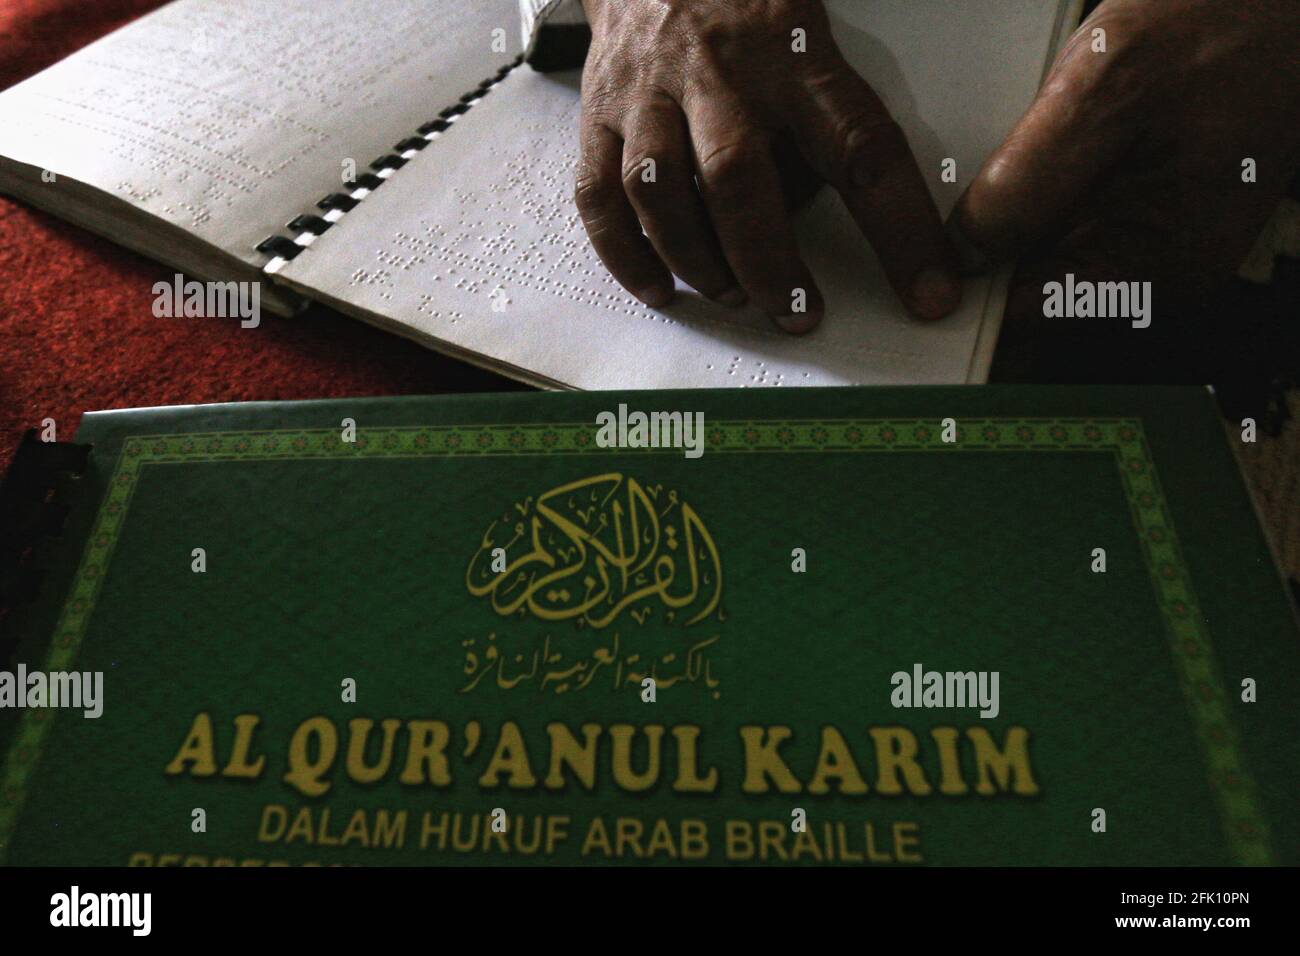 القرآن الكريم
بالكتابة العربية النافرة
AL QUR'ANUL KARIM
DALAM HURUF ARAB BRAILLE
alamy
alamy
alamy
alamy
Image ID: 2FK10PN
www.alamy.com